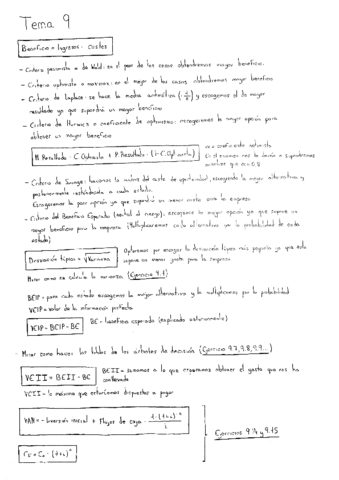 Tema 9
Beneficio = Ingresos - Costes
- Criterio pesimista o de Wald: en el peor de los casos obtendremos mayor beneficio.
- Criterio optimista o maximax: en el mejor de los casos obtendremos mayor beneficio
- Criterio de Laplace: se hace la media aritmética y escogemos el de mayor
resultado ya que supondrá un mayor beneficio
- Criterio de Hurwicz o coeficiente de optimismo: escogeremos la mayor opción para
obtener un mayor beneficio
M. Resultado · C. Optimista + P. Resultado · (1 - C. Optimista)
α = coeficiente optimista
En el examen nos lo darán o supondremos
- Criterio de Savage: hacemos la matriz del coste de oportunidad, escogiendo la mayor alternativa y
posteriormente restándosela a cada estado.
Escogeremos la peor opción ya que supondrá un menor coste para la empresa
- Criterio del Beneficio Esperado (neutral al riesgo), escogemos la mayor opción ya que supone un
mayor beneficio para la empresa (Multiplicaremos cada alternativa por la probabilidad de cada
estado)
Desviación típica = √Varianza
Optaremos por escoger la desviación típica más pequeña ya que esto
supone un menor gasto para la empresa
Mirar como se calcula la varianza (Ejercicio 9.7)
BCIP = para cada estado escogeremos la mayor alternativa y la multiplicamos por la probabilidad
VCIP = valor de la información perfecta
VCIP = BCIP - BE
BE = beneficio esperado (explicado anteriormente)
- Mirar como hacer las tablas de los árboles de decisión (Ejercicio 9.7, 9.8, 9.9...)
VEII = BEII - BE
BEII = sumamos a lo que creíamos obtener el gasto que nos ha
conllevado
VEII = lo máximo que estaríamos dispuestos a pagar
VAN = - Inversión inicial + Flujos de caja · 1-(1+i)⁻ⁿ / i
Ejercicios 9.14 y 9.15